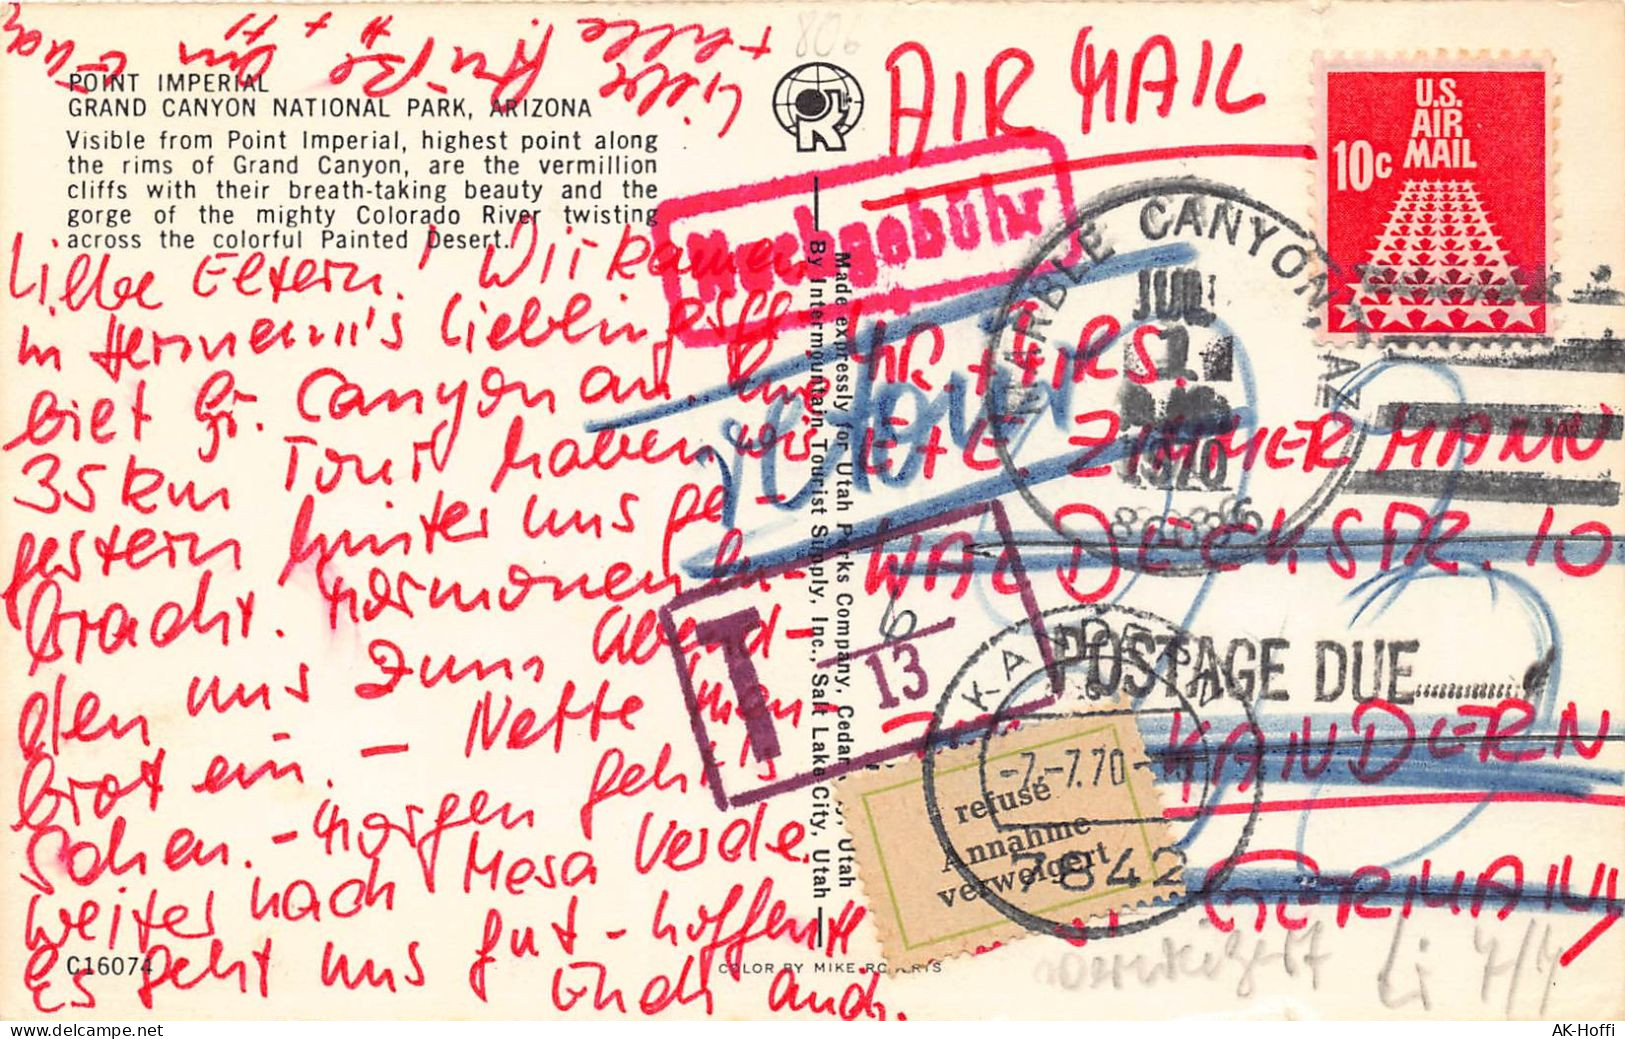 POINT IMPERIAL
GRAND CANYON NATIONAL PARK, ARIZONA
Visible from Point Imperial, highest point along
the rims of Grand Canyon, are the vermillion
cliffs with their breath-taking beauty and the
gorge of the mighty Colorado River twisting
across the colorful Painted Desert.
Liebe Eltern! Wir kamen
in Hermann's Lieblingsge-
biet Gr. Canyon an. Eine
35 km Tour haben wir
gestern hinter uns ge-
bracht. Mormonen lu-
den uns zum Abend-
brot ein. - Nette Men-
schen. - Morgen geht's
weiter nach Mesa Verde.
Es geht uns gut - hoffentl.
Euch auch.
Liebe Grüße
+ alle
C16074
COLOR BY MIKE ROBERTS
Made expressly for Utah Parks Company, Cedar City, Utah
By Intermountain Tourist Supply, Inc., Salt Lake City, Utah
908
AIR MAIL
U.S.
AIR
MAIL
10c
Nachgebühr
MARBLE CANYON, AZ
JUL
1
1970
86036
retour
MR. + MRS.
E + E. ZIMMERMANN
WALDECKSTR. 10
KANDERN
GERMANY
T
6
13
POSTAGE DUE
KANDERN
-7.-7.70-
7842
refusé
Annahme
verweigert
Li 7/7
AK-Hoffi